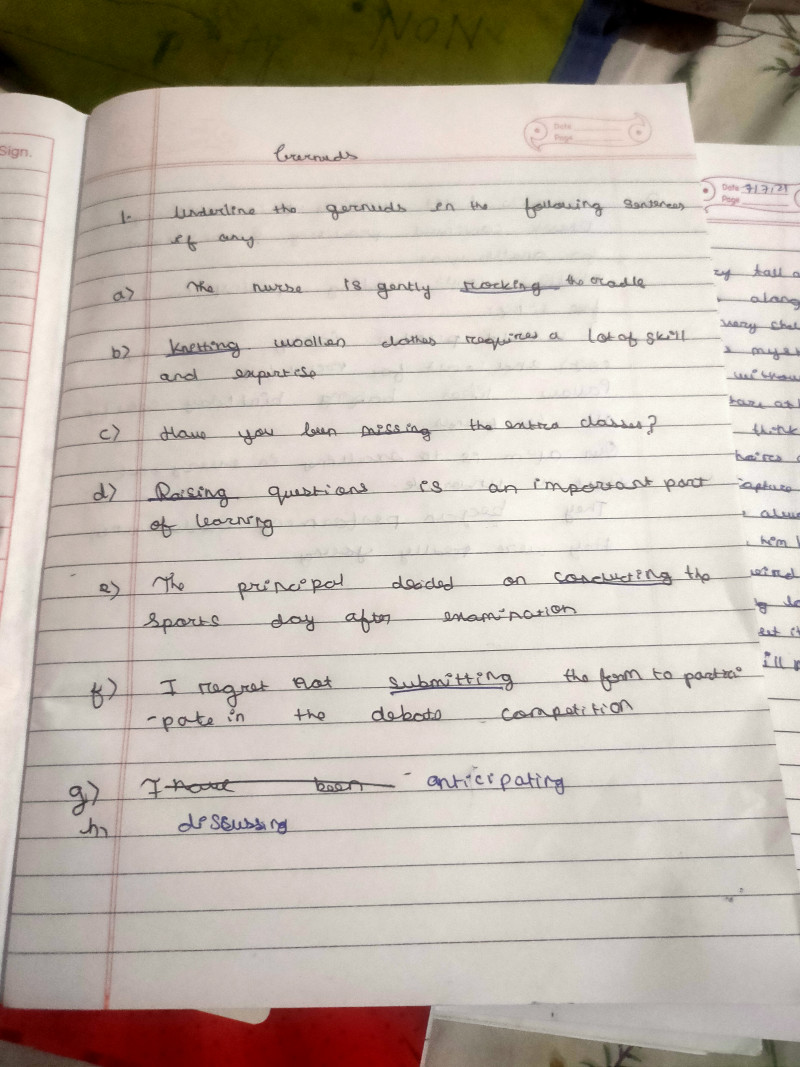 NON
Sign.
Date
Page
Date 7/7/21
Page
Gernuds
1. Underline the gernuds in the following sentences
if any
a) The nurse is gently rocking the cradle
b) Knitting woollen clothes requires a lot of skill
and expertise
c) Have you been missing the extra classes?
d) Raising questions is an important part
of learning
e) The principal decided on conducting the
sports day after examination
f) I regret not submitting the form to partici
-pate in the debate competition
g) I have been - anticipating
h) discussing
tall
along
very
mys
withou
think
haires
capture
him
wind